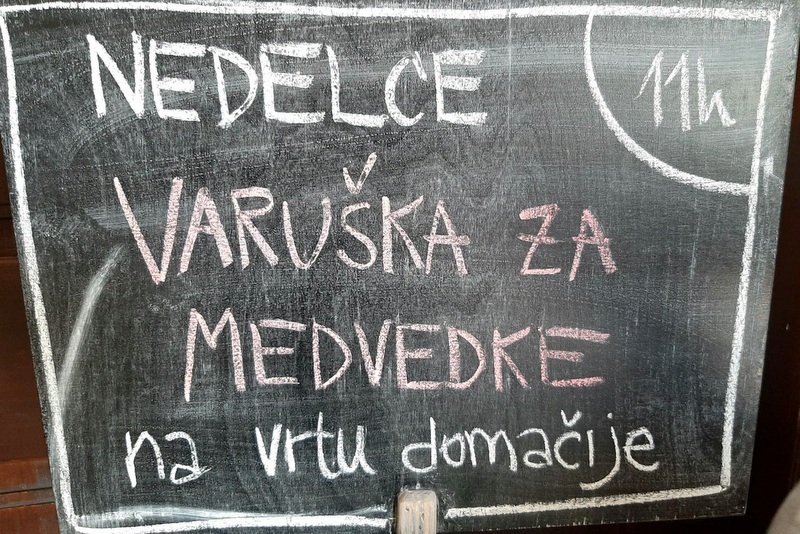 NEDELCE
11h
VARUŠKA ZA
MEDVEDKE
na vrtu domačije